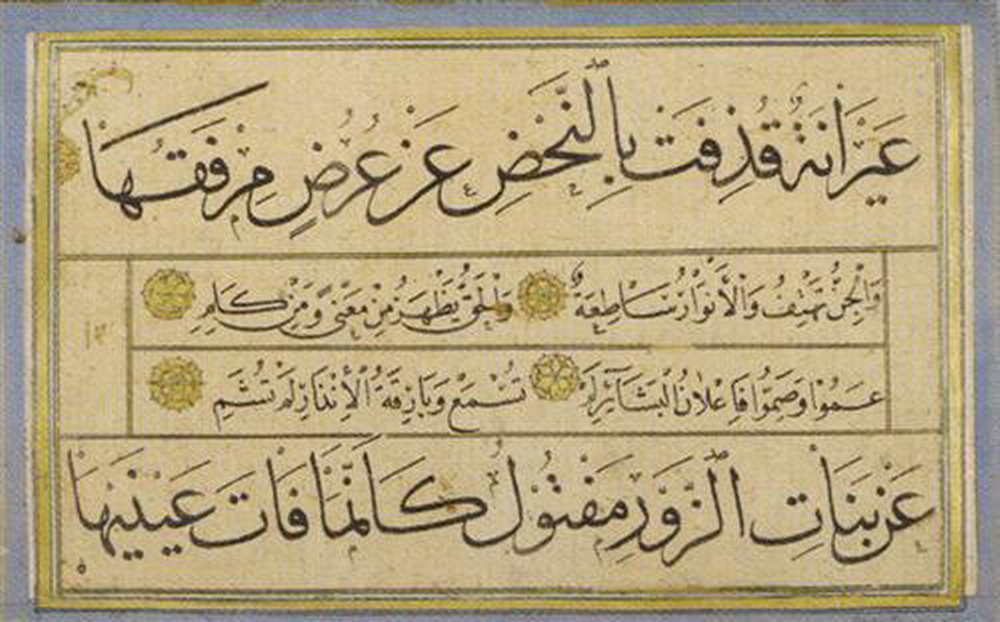 عَيْرَانَةٌ قُذِفَتْ بِالنَّحْضِ عَنْ عُرُضٍ مِرْفَقُهَا
وَالْجِنُّ تَهْتِفُ وَالْأَنْوَارُ سَاطِعَةٌ وَالْحَقُّ يَظْهَرُ مِنْ مَعْنًى وَمِنْ كَلِمِ
عَمُوا وَصَمُّوا فَإِعْلَانُ الْبَشَائِرِ لَمْ تُسْمَعْ وَبَارِقَةُ الْإِنْذَارِ لَمْ تُشَمِ
عَنْ بَنَاتِ الزَّوْرِ مَفْتُولُ كَأَنَّمَا فَاتَ عَيْنَيْهَا